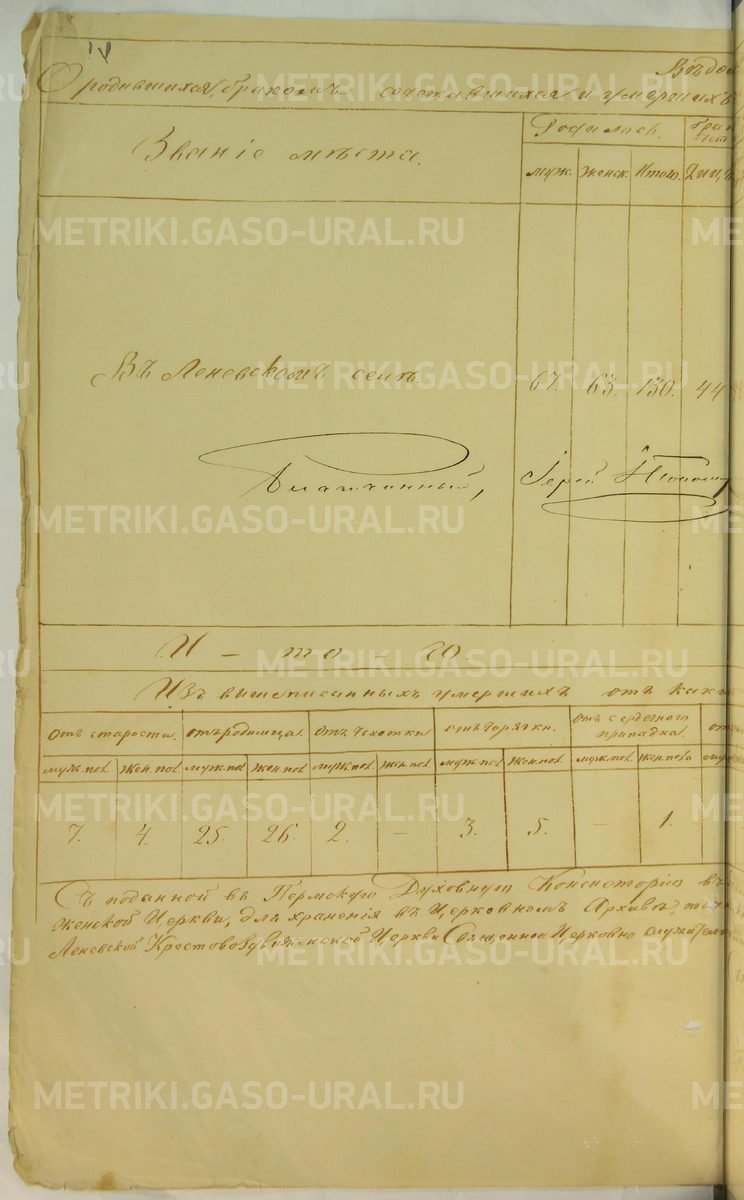 Вѣдо
О родившихся, бракомъ сочетавшихся и умершихъ в
Званіе мѣста.
Родилось.
Брак
муж.
женск.
Итого.
Въ Леневскомъ селѣ
67.
63.
130.
44
Благочинный,
Іерей
И - то - го.
Изъ вышеписанныхъ умершихъ отъ как
Отъ старости.
отъ родимца.
Отъ чахотки
отъ горячки.
Отъ сердечного припадка.
от
муж. пол.
жен. пол
муж. пол
жен. пол
муж. пол
жен. пол.
муж. пол
жен. пол
муж. пол.
жен. пола
7.
4.
25.
26.
2.
—
3.
5.
—
1.
Съ поданной въ Пермскую Духовную Консисторію въ
женской Церкви, для храненія въ Церковномъ Архивѣ, то
Леневской Крестовоздвиженской Церкви Священно Церковно служители
METRIKI.GASO-URAL.RU